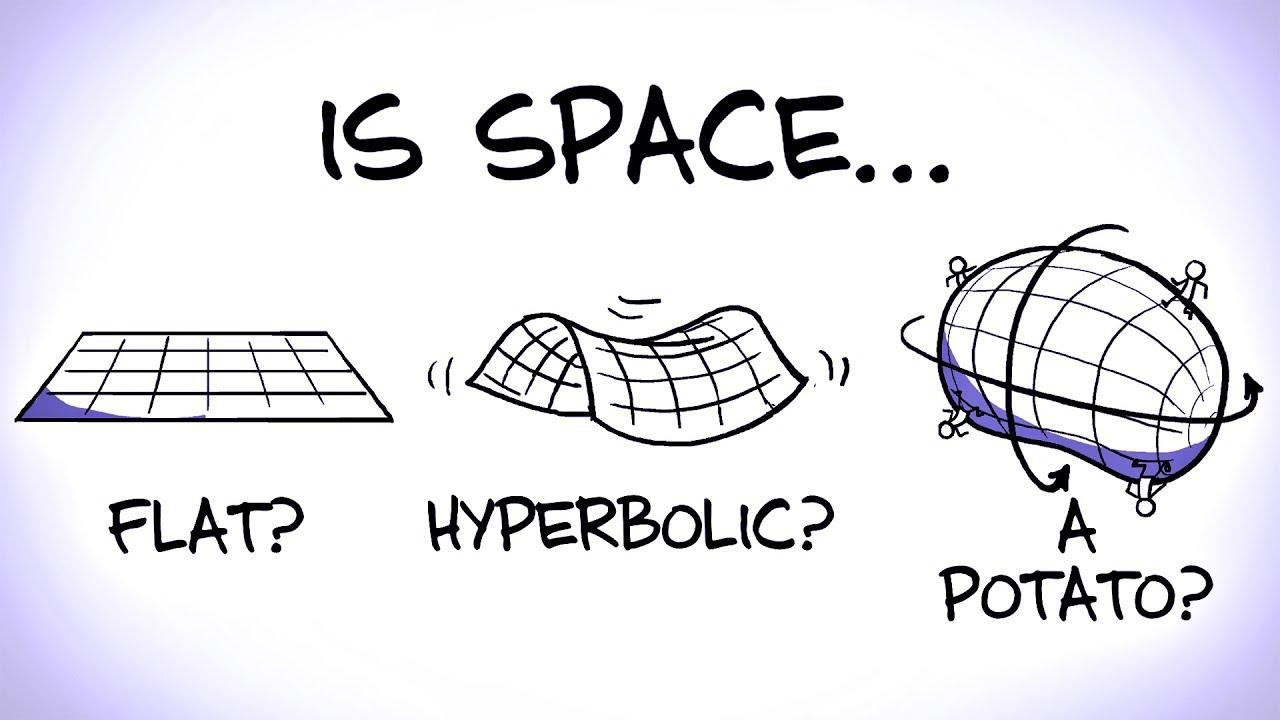 IS SPACE...
FLAT?
HYPERBOLIC?
A
POTATO?